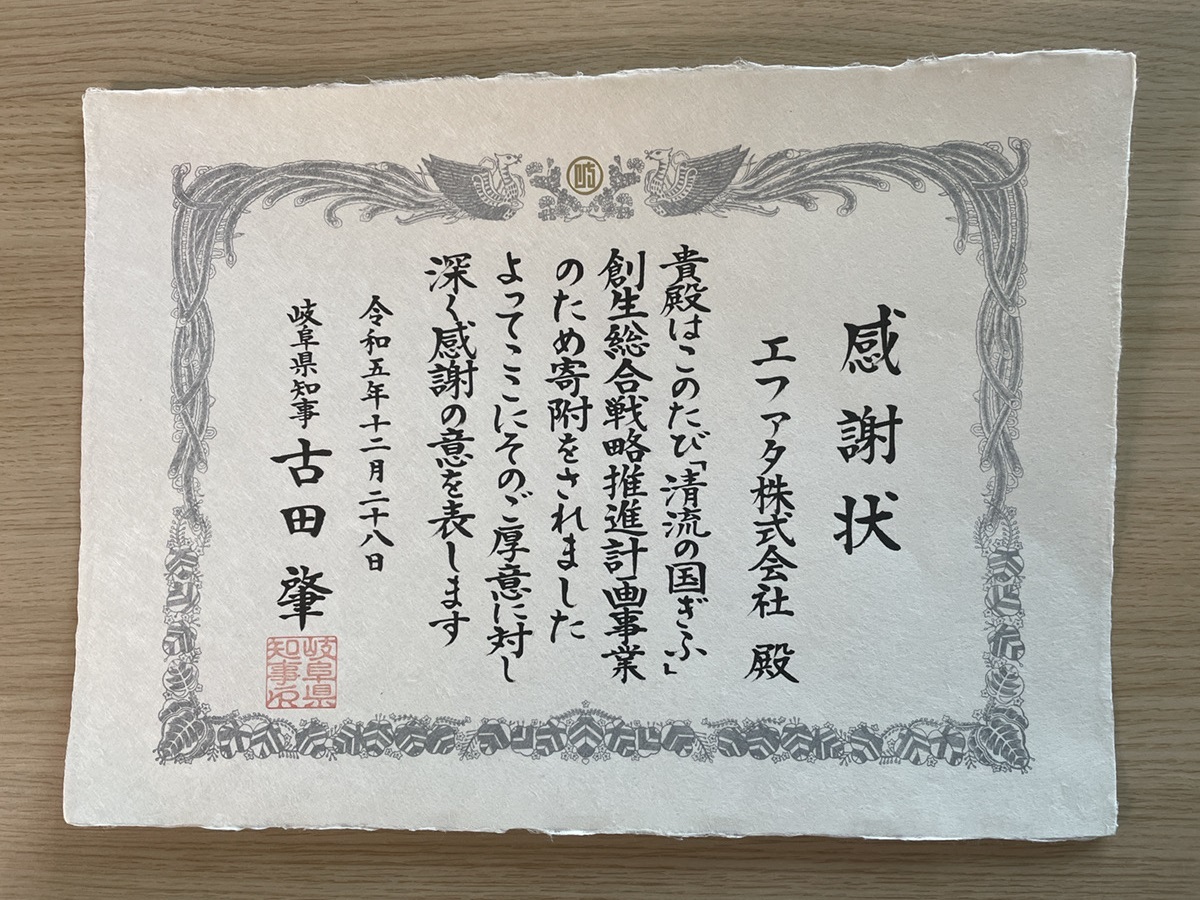 岐
感謝状
エファタ株式会社 殿
貴殿はこのたび「清流の国ぎふ」
創生総合戦略推進計画事業
のため寄附をされました
よってここにそのご厚意に対し
深く感謝の意を表します
令和五年十二月二十八日
岐阜県知事 古田 肇
岐阜県
知事印